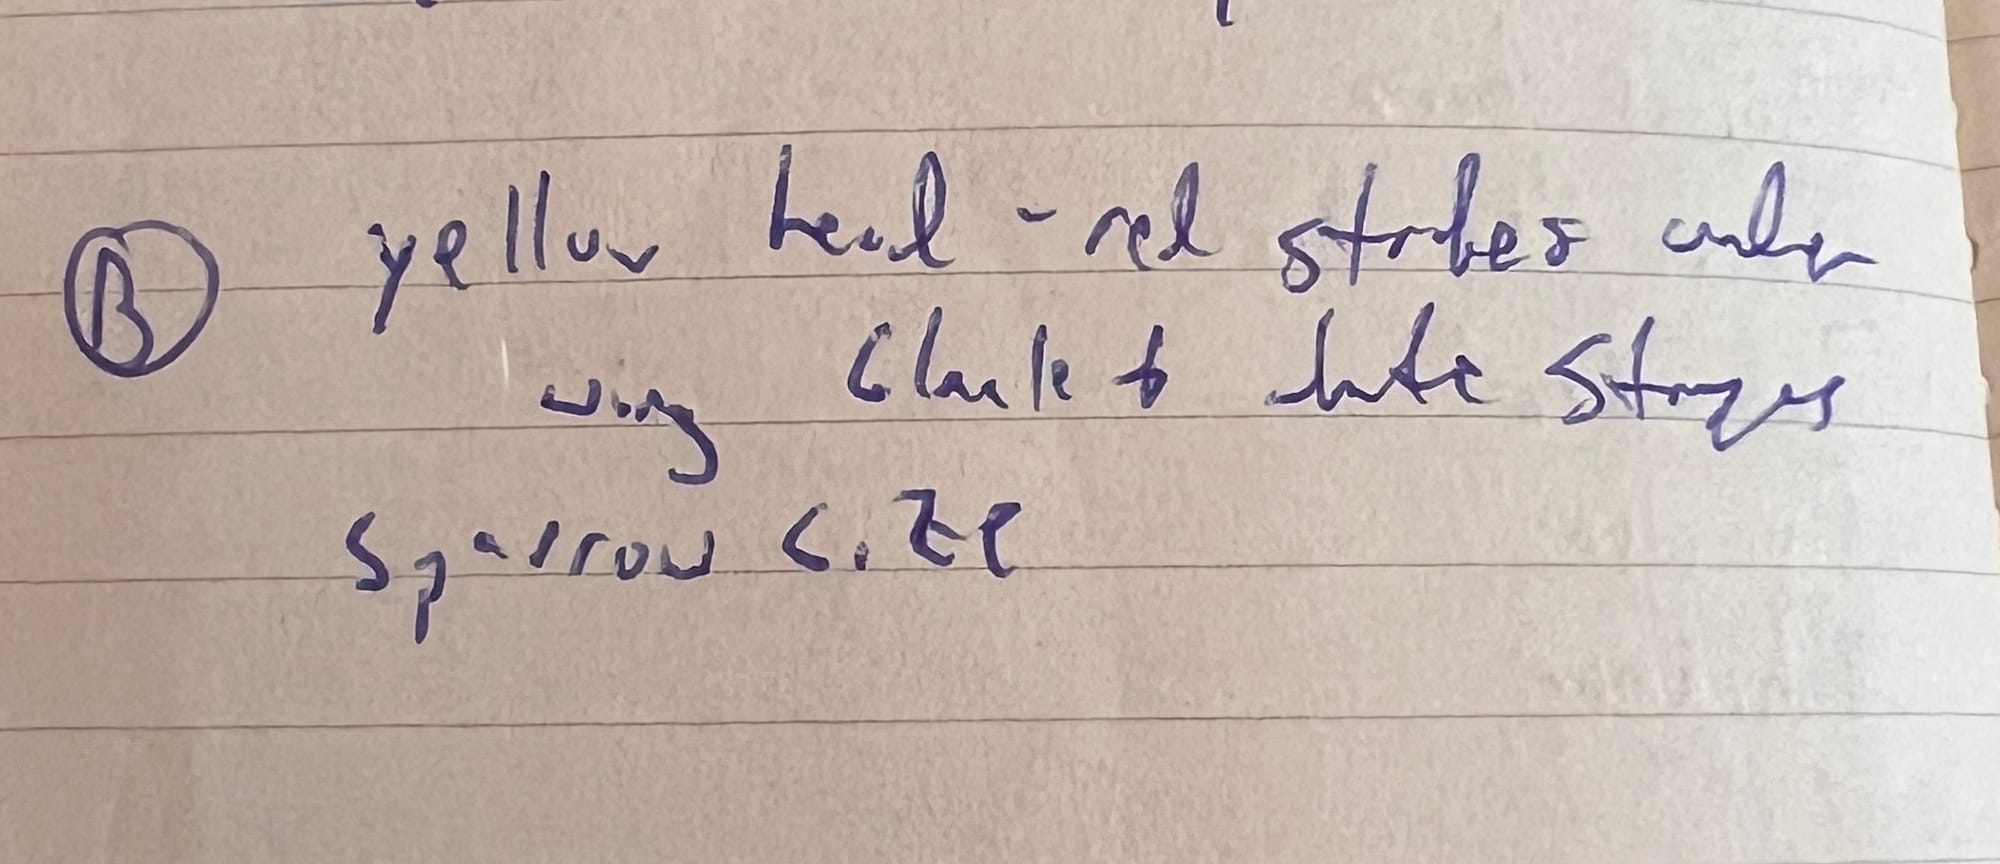 B yellow head - red strokes under
wing black + white stripes
sparrow size